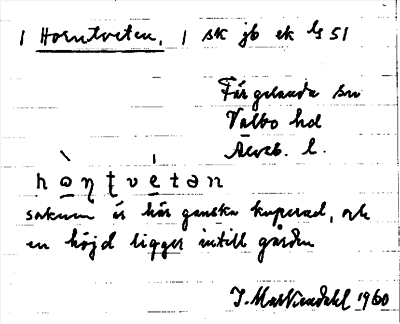 1 Horntveten, 1 sk jb ek ls 51
Färgelanda sn
Valbo hd
Älvsb. l.
hɷɳʈvetən
saknum är här ganska kuperad, och
en höjd ligger intill gården
1960